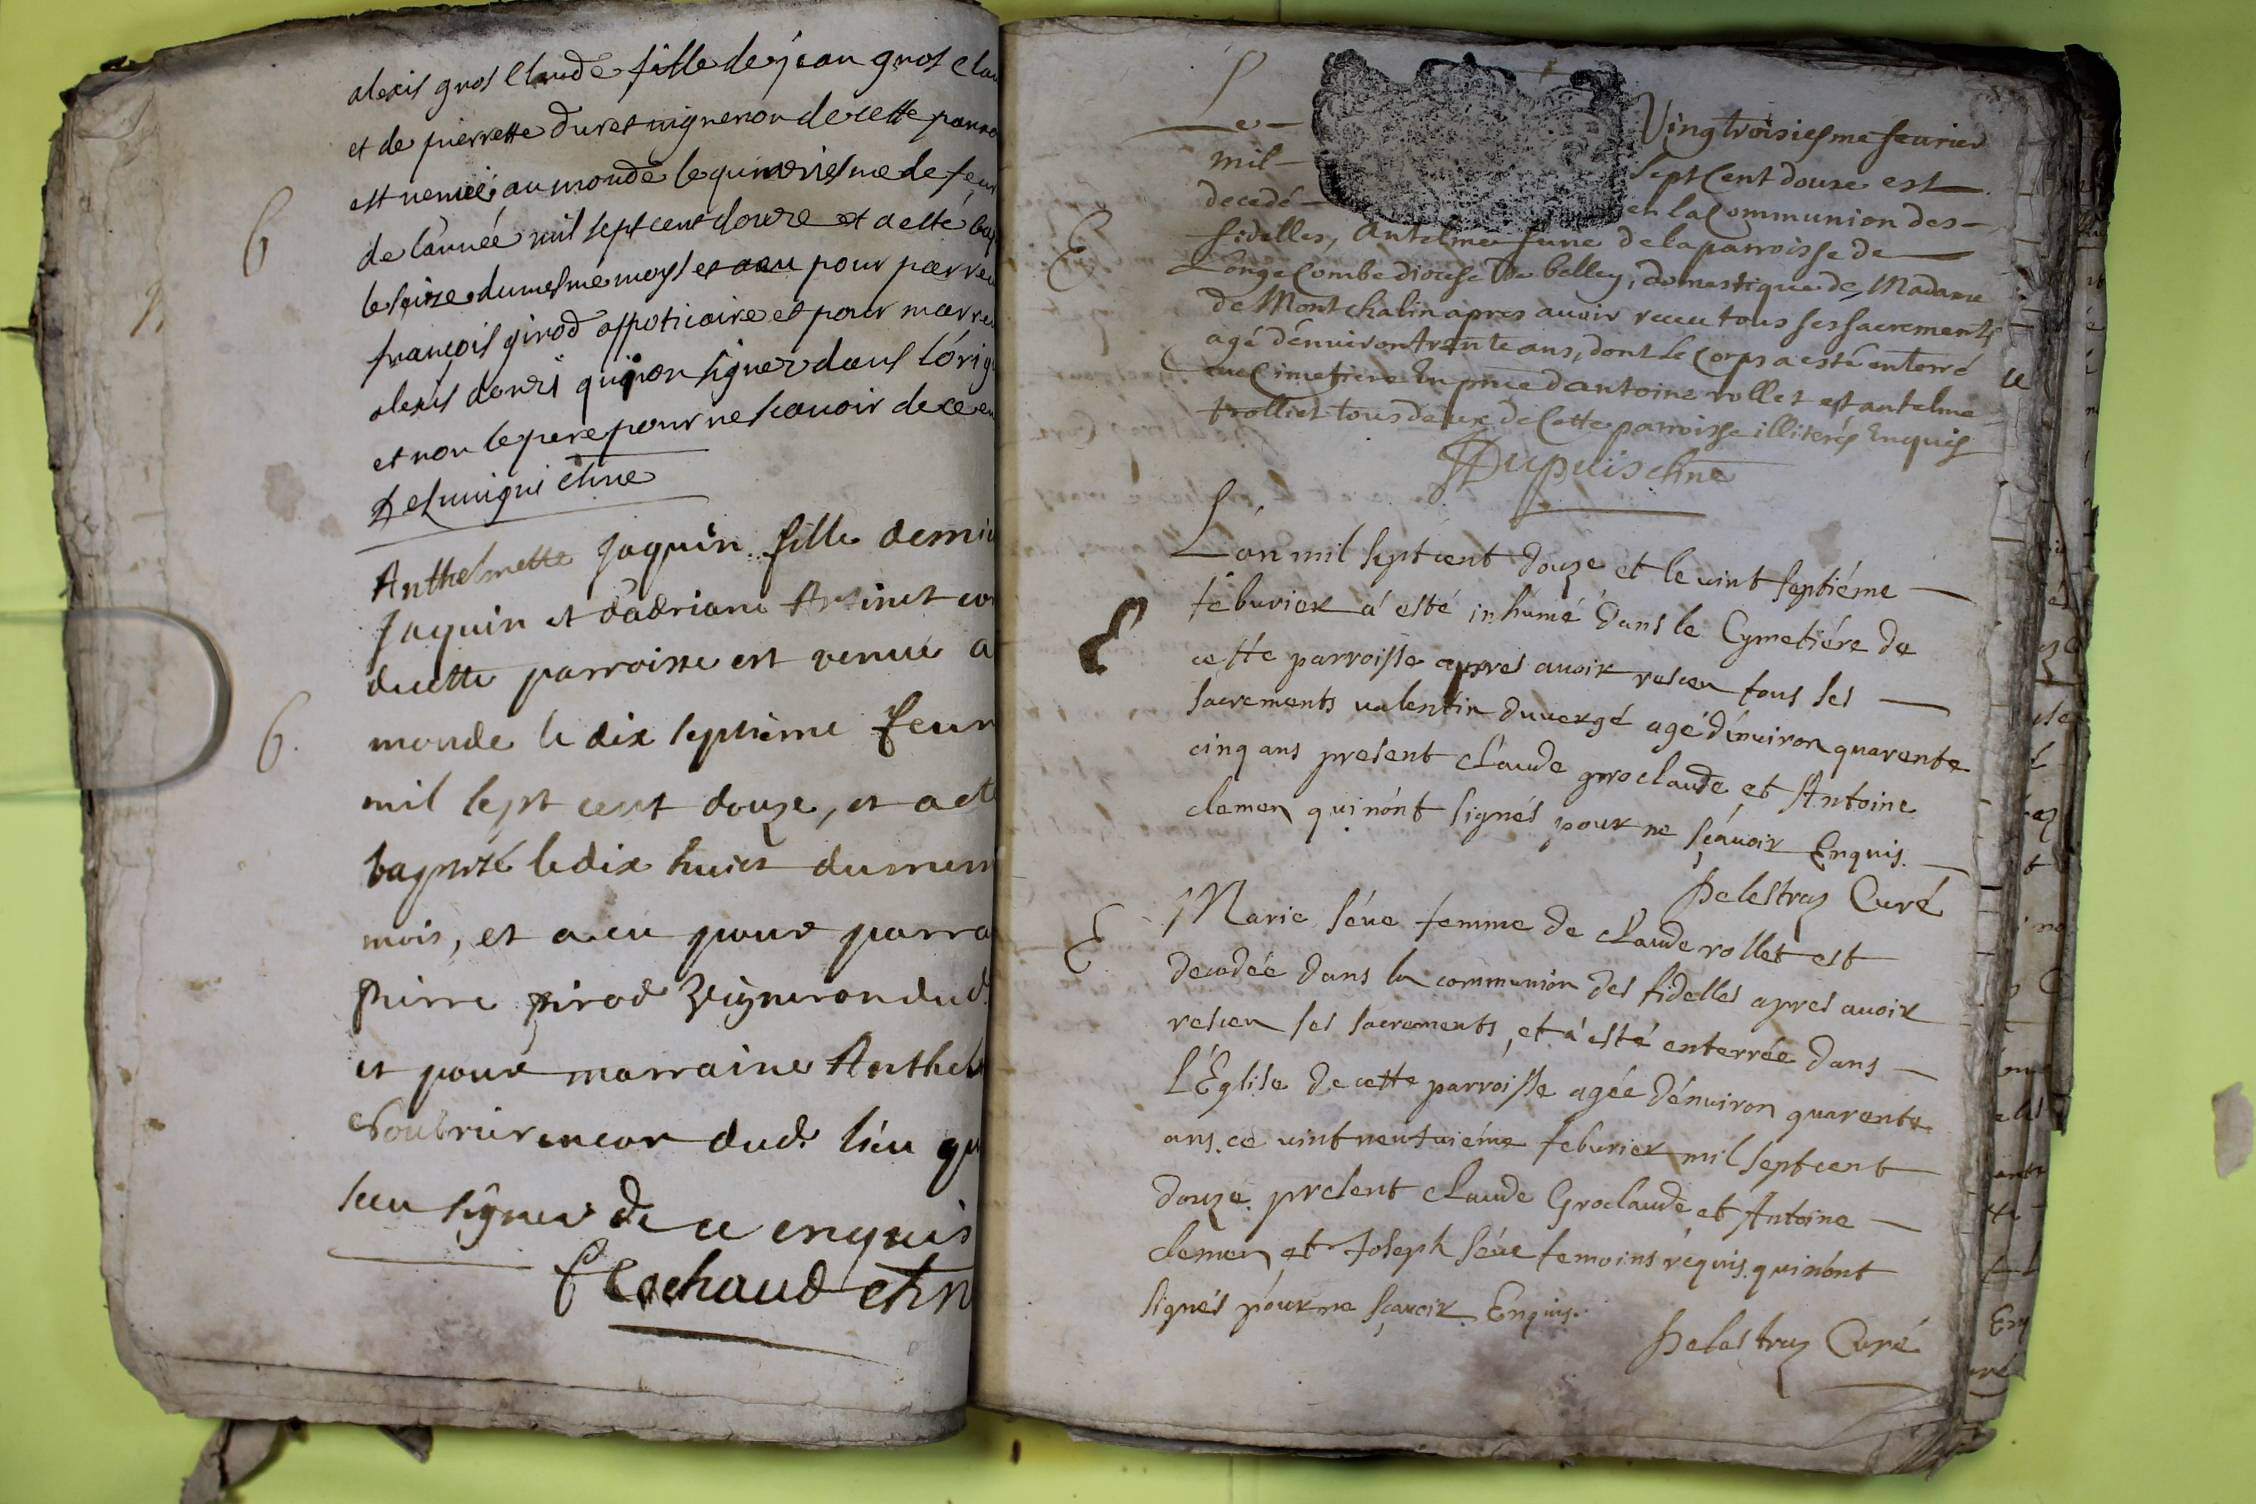 alexis gros Claude fille de jean gros clau
et de pierrette duret vigneron de cette parro
est venue au monde le quinziesme de feur
de lánnée mil sept cent douze et a esté bap
le seize du mesme moys et aeu pour parrein
françois girod appoticaire et pour marre
alexis qui non signer dans lórig
et non le pere pour ne scavoir de ce en
B
Anthelmette Jaquin fille de
Jaquin et dadriane
de cette parroisse est venue a
monde le dix septieme feur
B.
mil sept cent douze, et a eté
baptisé le dix huict du mem
mois, et a eu pour parra
Pierre girod Vigneron dud.
et pour marraine Anthel
dud. lieu qu
sceu signer de ce enquis
Cochaud
Le Vingtroisiesme feurier
mil sept Cent douze est
decedé en la Communion des
E
fidelles, Antelme June de la parroisse de
Longe Combe diocese de belley, domestique de Madame
de Montchalin apres auoir receu tous ses sacrements
agé dénuiron trente ans, dont le Corps a esté enterré
au Cimetiere En pñce dantoine rollet et antelme
trolliet tous deux de Cette parroisse illiterés Enquis
Dupuis
Lán mil sept cent douze et le vint septiéme
feburier a' esté inhumé dans le Cymetiére de
E
cette parroisse apres auoir resceu tous ses
sacrements valentin duvergé agé dénuiron quarente
cinq ans present claude groclaude et Antoine
clemen qui nónt signés pour ne sçauoir Enquis.
Delestraz Curé
E
Marie séue femme de claude rollet est
decedée dans la communion des fidelles apres auoir
resceu ses sacrements, et a' esté enterrée dans
L'Église de cette parroisse agée dénuiron quarente
ans. ce vint neufuiéme feburier mil sept cent
douze. present claude Groclaude et Antoine
clemen et Joseph séue temoins réquis. qui nónt
signés pour ne sçauoir Enquis.
Delestraz Curé